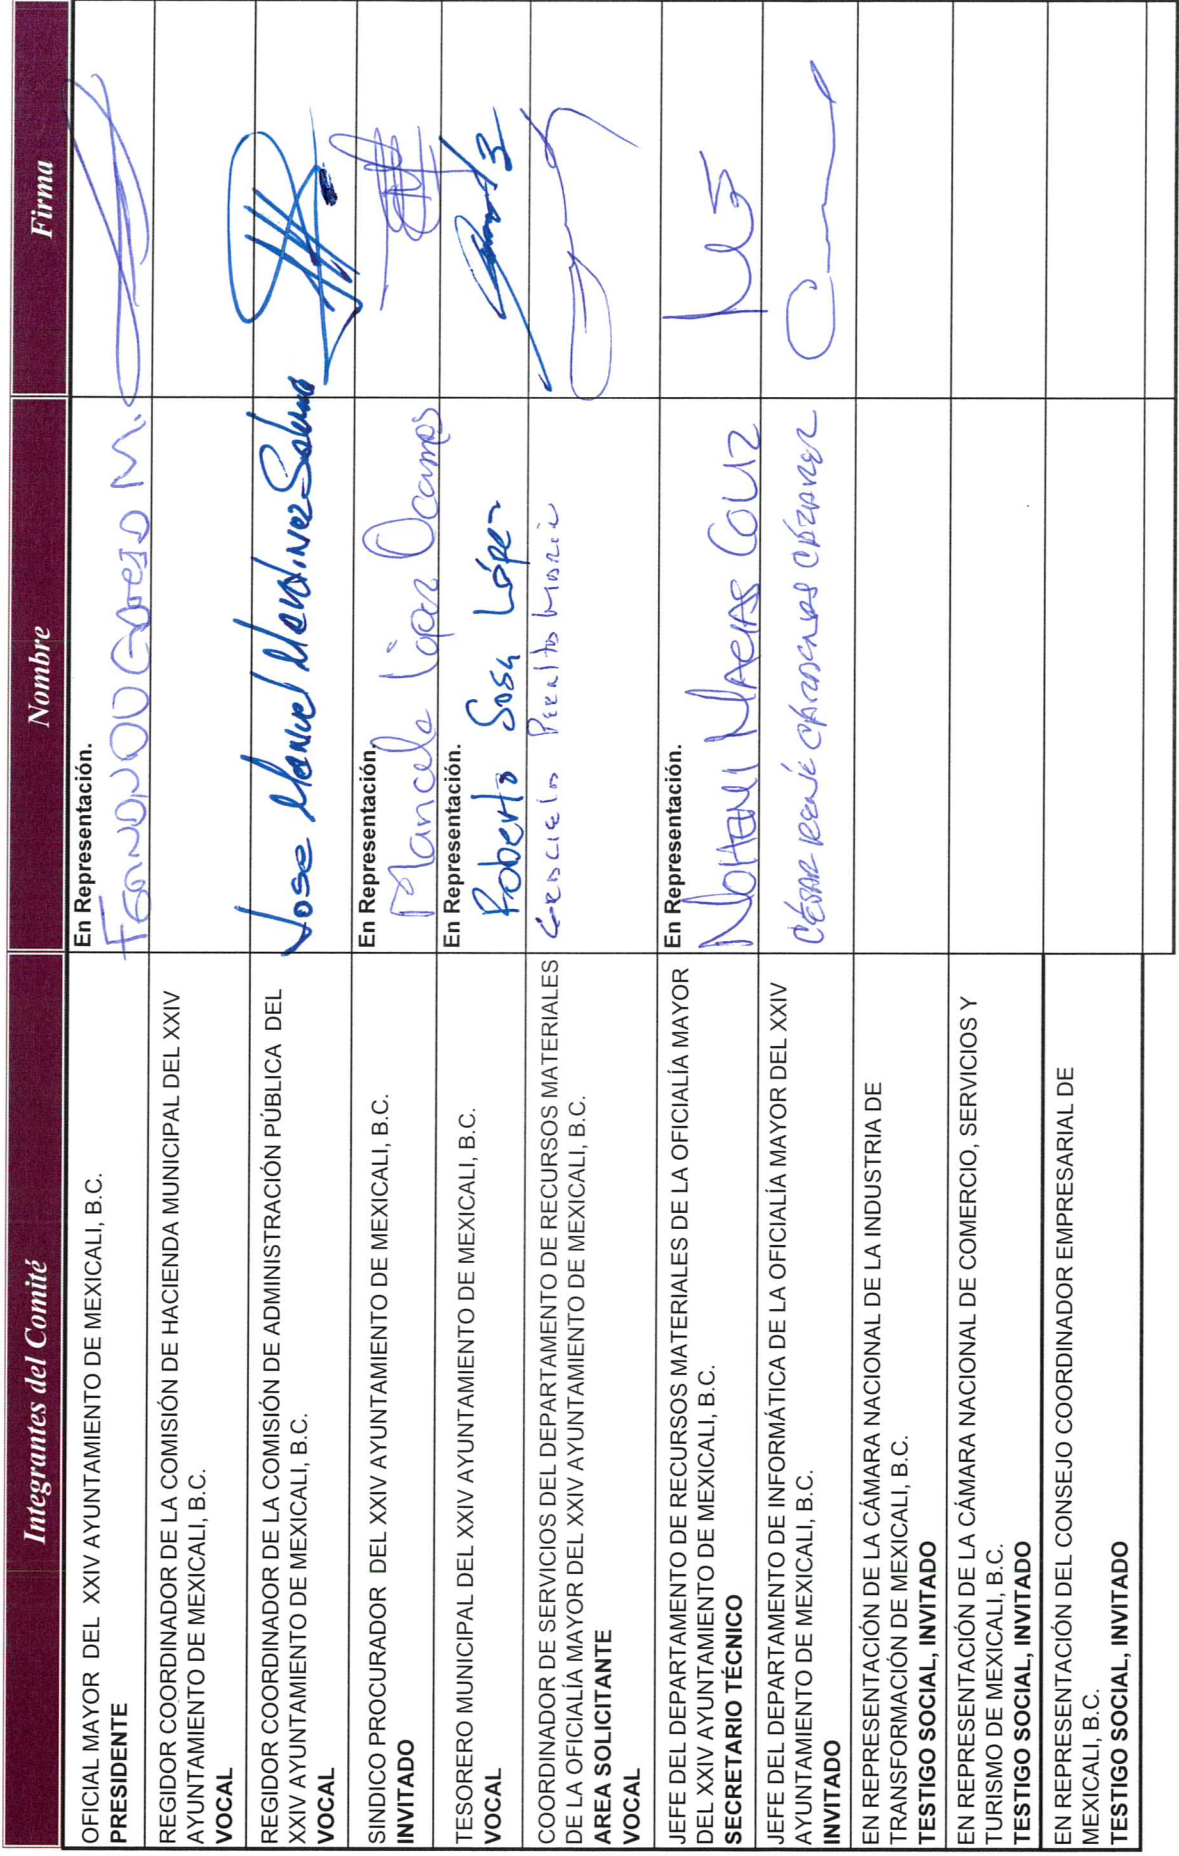 Integrantes del Comité
Nombre
Firma
OFICIAL MAYOR DEL XXIV AYUNTAMIENTO DE MEXICALI, B.C.
PRESIDENTE
En Representación.
M.
REGIDOR COORDINADOR DE LA COMISIÓN DE HACIENDA MUNICIPAL DEL XXIV
AYUNTAMIENTO DE MEXICALI, B.C.
VOCAL
REGIDOR COORDINADOR DE LA COMISIÓN DE ADMINISTRACIÓN PÚBLICA DEL
XXIV AYUNTAMIENTO DE MEXICALI, B.C.
VOCAL
Jose Manuel Martinez
SINDICO PROCURADOR DEL XXIV AYUNTAMIENTO DE MEXICALI, B.C.
INVITADO
En Representación.
Marcela López Ocampo
TESORERO MUNICIPAL DEL XXIV AYUNTAMIENTO DE MEXICALI, B.C.
VOCAL
En Representación.
Roberto Sosa López
COORDINADOR DE SERVICIOS DEL DEPARTAMENTO DE RECURSOS MATERIALES
DE LA OFICIALÍA MAYOR DEL XXIV AYUNTAMIENTO DE MEXICALI, B.C.
AREA SOLICITANTE
VOCAL
JEFE DEL DEPARTAMENTO DE RECURSOS MATERIALES DE LA OFICIALÍA MAYOR
DEL XXIV AYUNTAMIENTO DE MEXICALI, B.C.
SECRETARIO TÉCNICO
En Representación.
NOHEMI MACIAS
JEFE DEL DEPARTAMENTO DE INFORMÁTICA DE LA OFICIALÍA MAYOR DEL XXIV
AYUNTAMIENTO DE MEXICALI, B.C.
INVITADO
CÉSAR RENÉ CÁRDENAS CÁZAREZ
EN REPRESENTACIÓN DE LA CÁMARA NACIONAL DE LA INDUSTRIA DE
TRANSFORMACIÓN DE MEXICALI, B.C.
TESTIGO SOCIAL, INVITADO
EN REPRESENTACIÓN DE LA CÁMARA NACIONAL DE COMERCIO, SERVICIOS Y
TURISMO DE MEXICALI, B.C.
TESTIGO SOCIAL, INVITADO
EN REPRESENTACIÓN DEL CONSEJO COORDINADOR EMPRESARIAL DE
MEXICALI, B.C.
TESTIGO SOCIAL, INVITADO